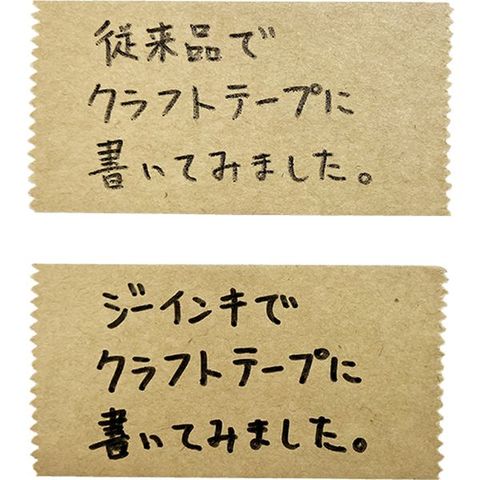 従来品で
クラフトテープに
書いてみました。
ジーインキで
クラフトテープに
書いてみました。